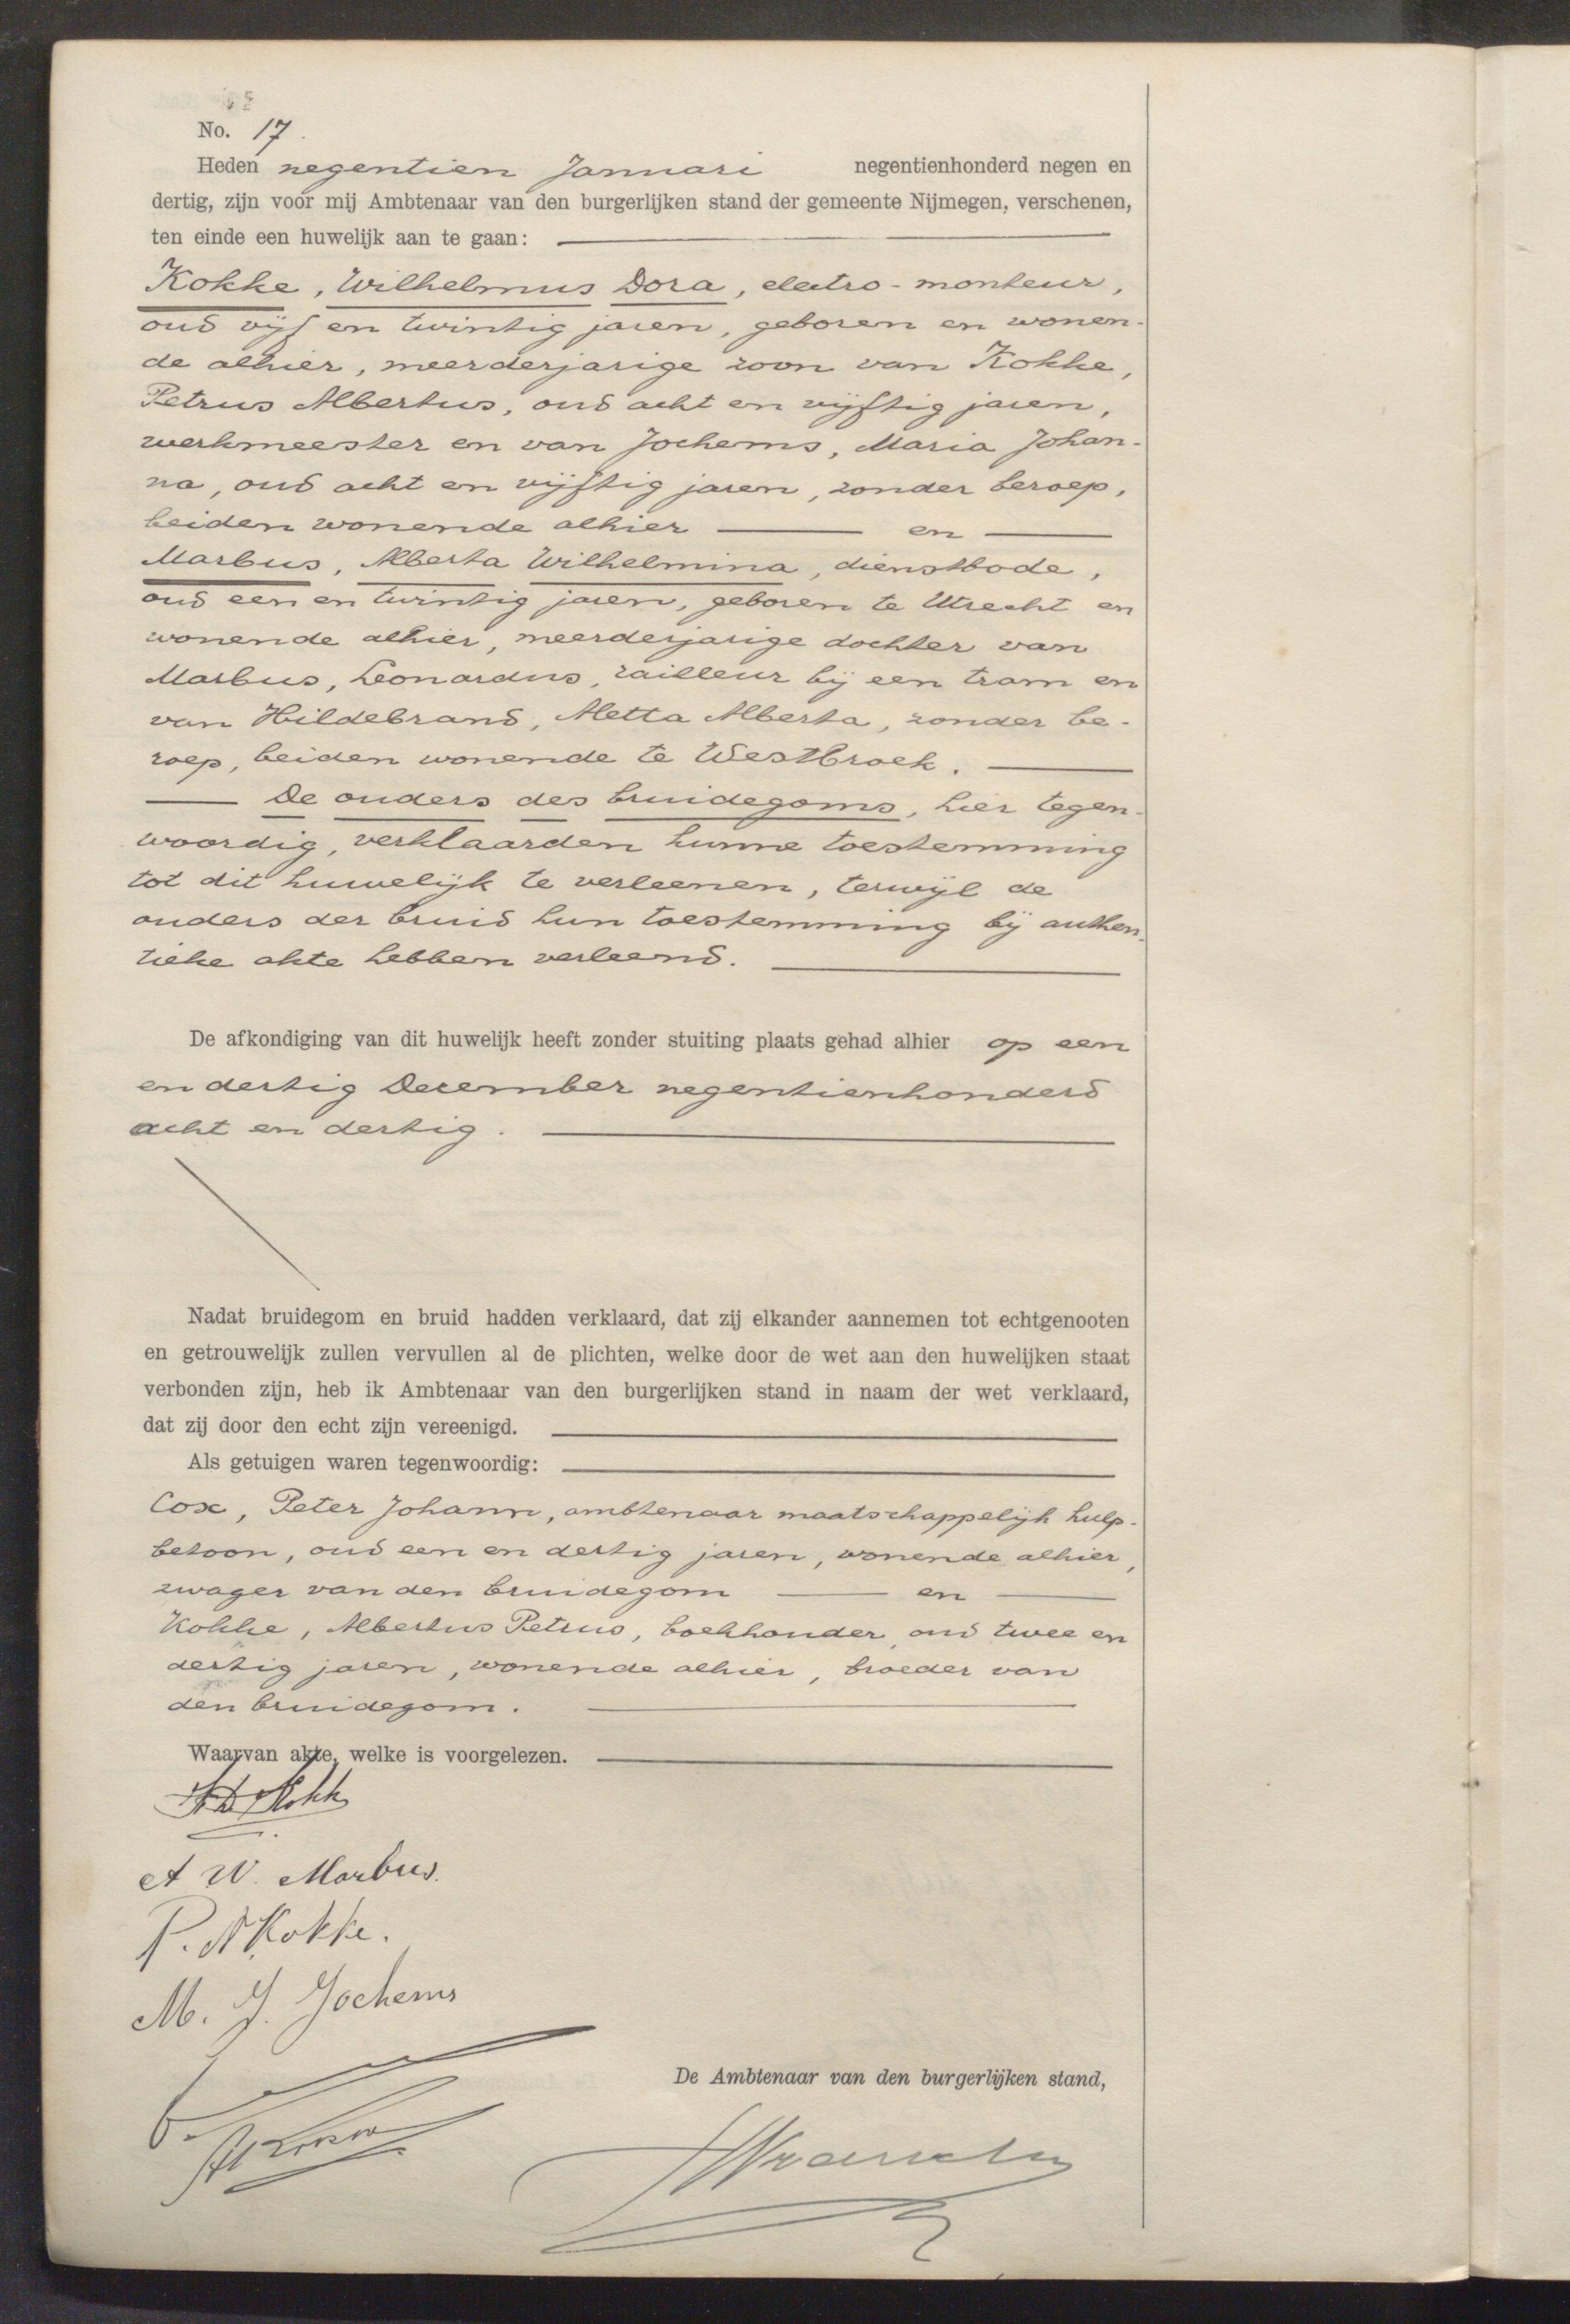 No. 17.
Heden negentien Januari negentienhonderd negen en
dertig, zijn voor mij Ambtenaar van den burgerlijken stand der gemeente Nijmegen, verschenen,
ten einde een huwelijk aan te gaan:
Kokke, Wilhelmus Dora, electro-monteur,
oud vijf en twintig jaren, geboren en wonen-
de alhier, meerderjarige zoon van Kokke,
Petrus Albertus, oud acht en vijftig jaren,
werkmeester en van Jochems, Maria Johan-
na, oud acht en vijftig jaren, zonder beroep,
beiden wonende alhier en
Marbus, Alberta Wilhelmina, dienstbode,
oud een en twintig jaren, geboren te Utrecht en
wonende alhier, meerderjarige dochter van
Marbus, Leonardus, railleur bij een tram en
van Hildebrand, Aletta Alberta, zonder be-
roep, beiden wonende te Westbroek.
De ouders des bruidegoms, hier tegen-
woordig, verklaarden hunne toestemming
tot dit huwelijk te verleenen, terwijl de
ouders der bruid hun toestemming bij authen-
tieke akte hebben verleend.
De afkondiging van dit huwelijk heeft zonder stuiting plaats gehad alhier op een
en dertig December negentienhonderd
acht en dertig.
Nadat bruidegom en bruid hadden verklaard, dat zij elkander aannemen tot echtgenooten
en getrouwelijk zullen vervullen al de plichten, welke door de wet aan den huwelijken staat
verbonden zijn, heb ik Ambtenaar van den burgerlijken stand in naam der wet verklaard,
dat zij door den echt zijn vereenigd.
Als getuigen waren tegenwoordig:
Cox, Peter Johann, ambtenaar maatschappelijk hulp-
betoon, oud een en dertig jaren, wonende alhier,
zwager van den bruidegom en
Kokke, Albertus Petrus, boekhouder, oud twee en
dertig jaren, wonende alhier, broeder van
den bruidegom.
Waarvan akte, welke is voorgelezen.
A W. Marbus.
P. A Kokke.
M. J. Jochems
De Ambtenaar van den burgerlijken stand,